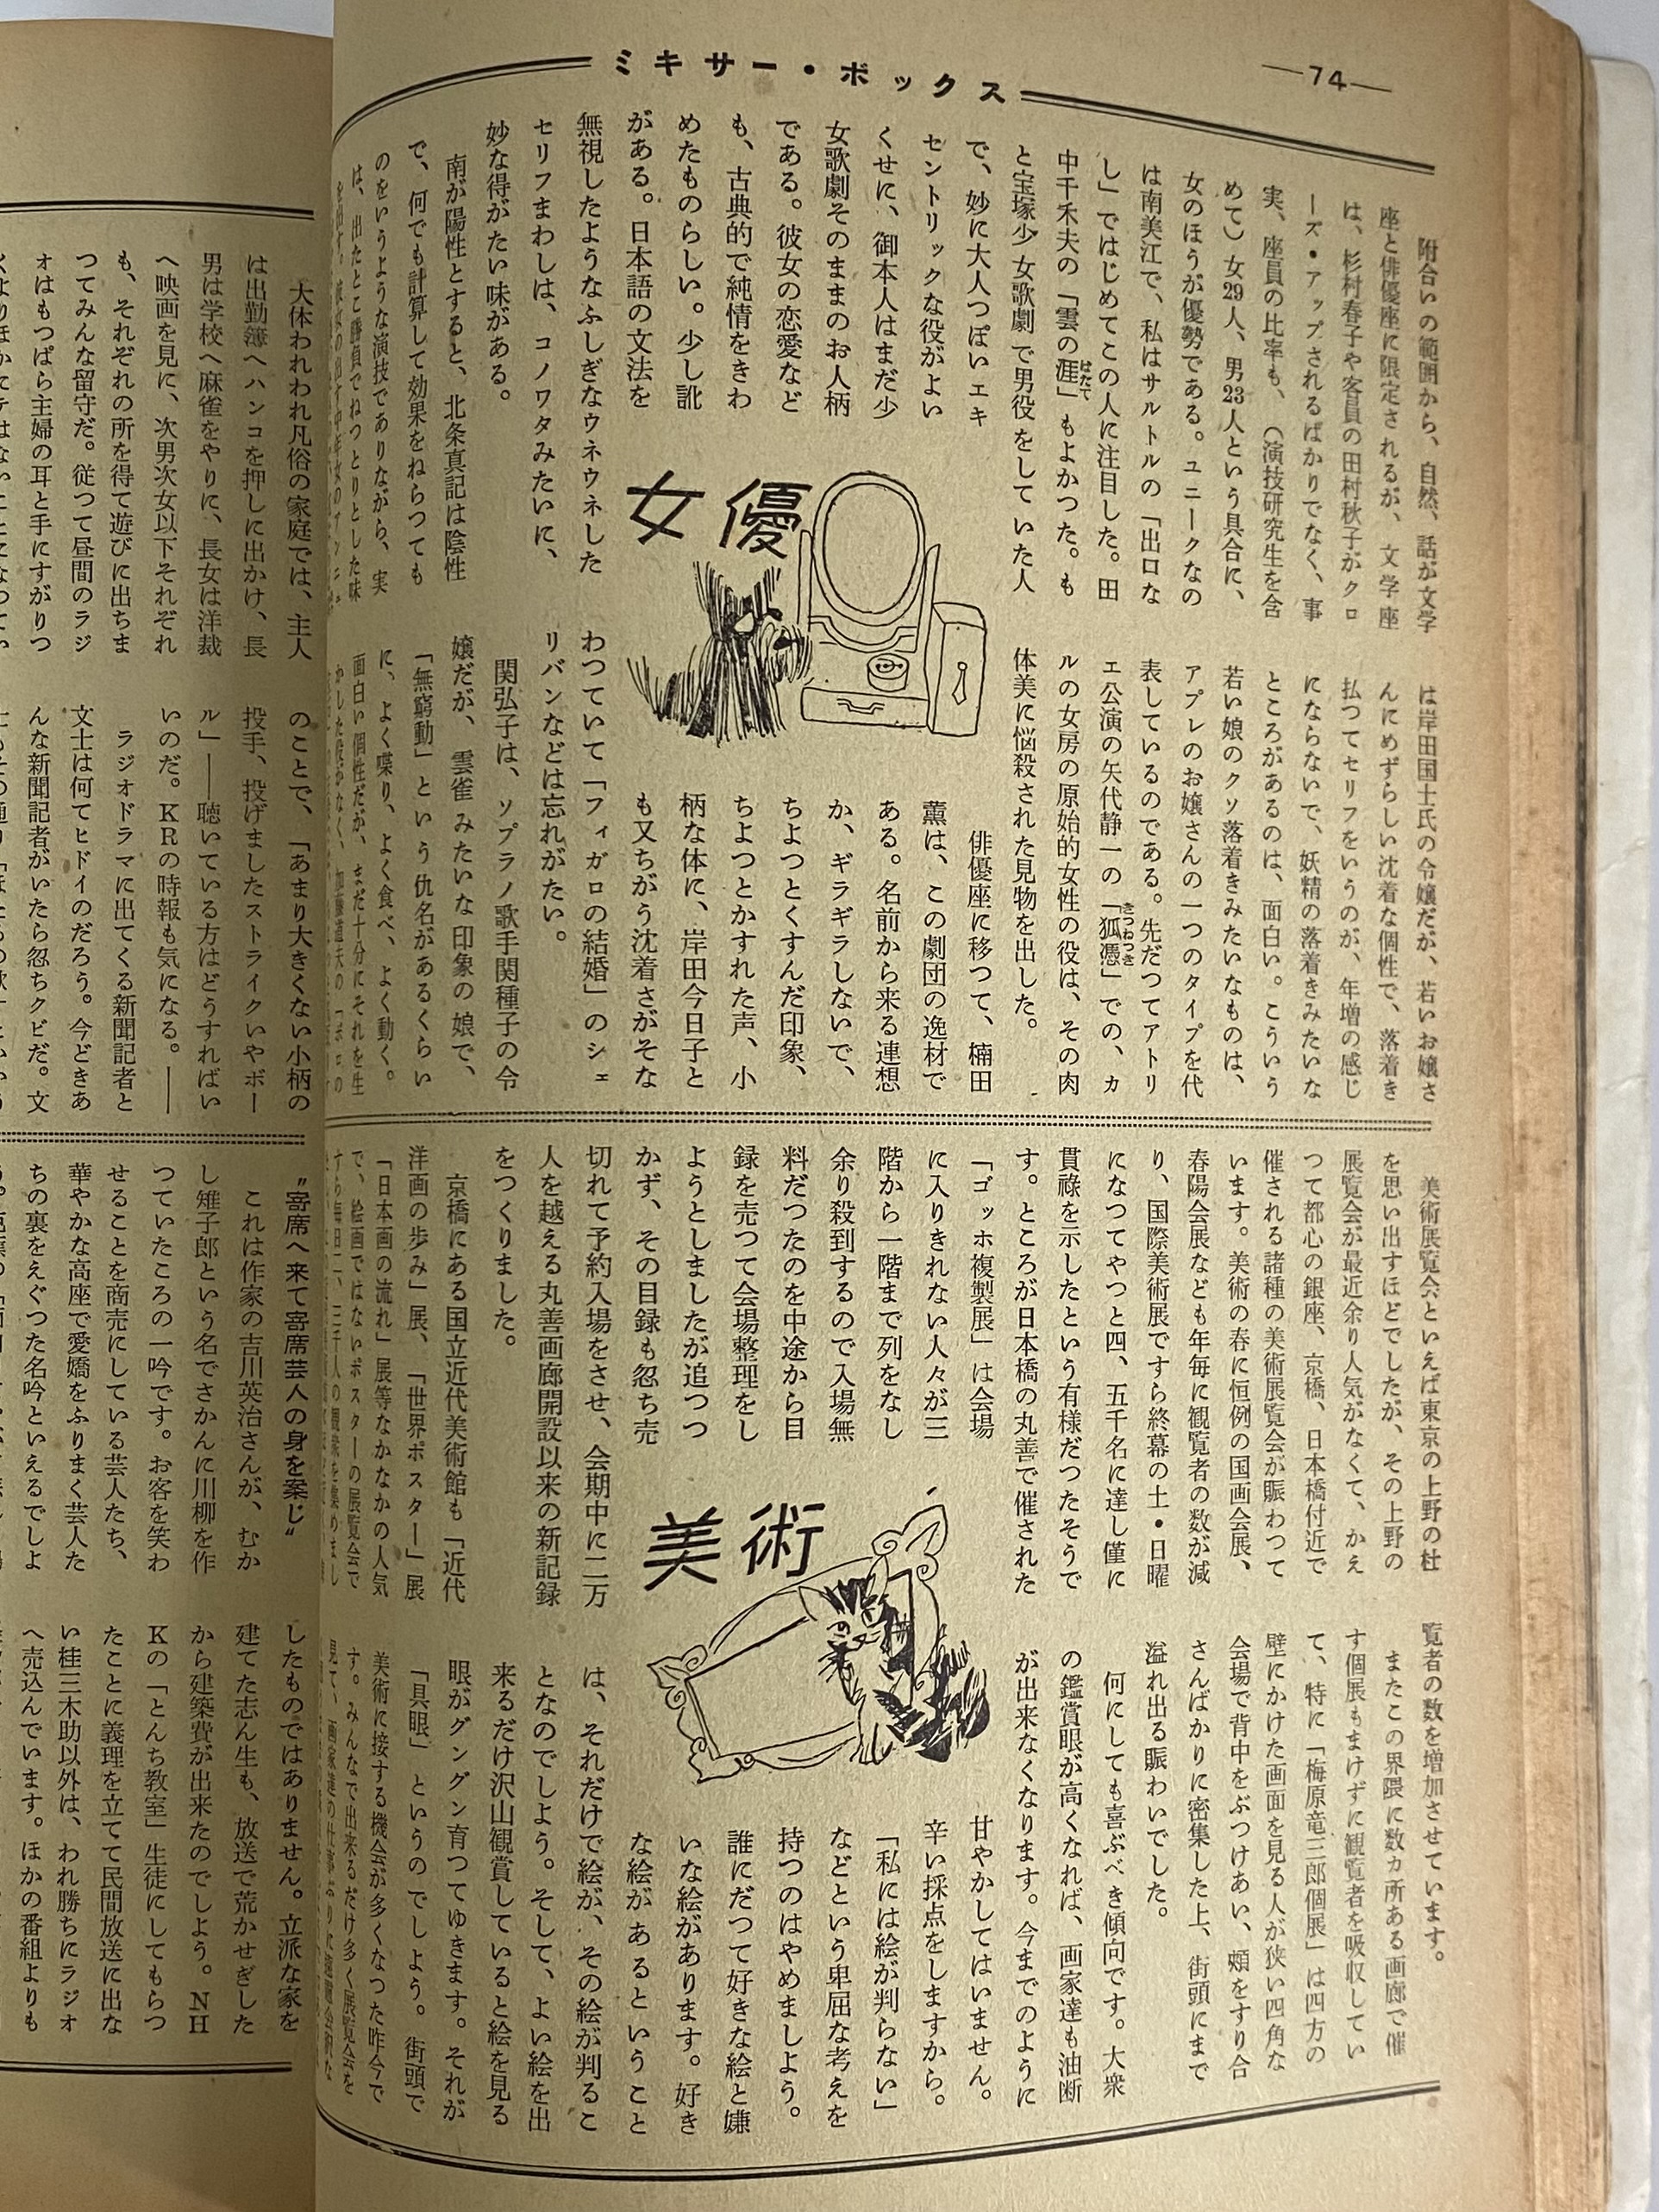 —74—
ミキサー・ボックス
女優
附合いの範囲から、自然、話が文学
座と俳優座に限定されるが、文学座
は、杉村春子や客員の田村秋子がクロ
ーズ・アップされるばかりでなく、事
実、座員の比率も、（演技研究生を含
めて）女29人、男23人という具合に、
女のほうが優勢である。ユニークなの
は南美江で、私はサルトルの「出口な
し」ではじめてこの人に注目した。田
中千禾夫の「雲の涯」もよかつた。も
はたて
と宝塚少女歌劇で男役をしていた人
で、妙に大人つぽいエキ
セントリックな役がよい
くせに、御本人はまだ少
女歌劇そのままのお人柄
である。彼女の恋愛など
も、古典的で純情をきわ
めたものらしい。少し訛
がある。日本語の文法を
無視したようなふしぎなウネウネした
セリフまわしは、コノワタみたいに、
妙な得がたい味がある。
南が陽性とすると、北条真記は陰性
で、何でも計算して効果をねらつても
のをいうような演技でありながら、実
は、出たとこ勝負でねつとりとした味
は岸田国士氏の令嬢だが、若いお嬢さ
んにめずらしい沈着な個性で、落着き
払つてセリフをいうのが、年増の感じ
にならないで、妖精の落着きみたいな
ところがあるのは、面白い。こういう
若い娘のクソ落着きみたいなものは、
アプレのお嬢さんの一つのタイプを代
表しているのである。先だつてアトリ
エ公演の矢代静一の「狐憑」での、カ
きつねつき
ルの女房の原始的女性の役は、その肉
体美に悩殺された見物を出した。
俳優座に移つて、楠田
薫は、この劇団の逸材で
ある。名前から来る連想
か、ギラギラしないで、
ちよつとくすんだ印象、
ちよつとかすれた声、小
柄な体に、岸田今日子と
も又ちがう沈着さがそな
わつていて「フィガロの結婚」のシェ
リバンなどは忘れがたい。
関弘子は、ソプラノ歌手関種子の令
嬢だが、雲雀みたいな印象の娘で、
「無窮動」という仇名があるくらい
に、よく喋り、よく食べ、よく動く。
面白い個性だが、まだ十分にそれを生
かした役がなく、加藤道夫の「ポロの
美術
美術展覧会といえば東京の上野の杜
を思い出すほどでしたが、その上野の
展覧会が最近余り人気がなくて、かえ
つて都心の銀座、京橋、日本橋付近で
催される諸種の美術展覧会が賑わつて
います。美術の春に恒例の国画会展、
春陽会展なども年毎に観覧者の数が減
り、国際美術展ですら終幕の土・日曜
になつてやつと四、五千名に達し僅に
貫祿を示したという有様だつたそうで
す。ところが日本橋の丸善で催された
「ゴッホ複製展」は会場
に入りきれない人々が三
階から一階まで列をなし
余り殺到するので入場無
料だつたのを中途から目
録を売つて会場整理をし
ようとしましたが追つつ
かず、その目録も忽ち売
切れて予約入場をさせ、会期中に二万
人を越える丸善画廊開設以来の新記録
をつくりました。
京橋にある国立近代美術館も「近代
洋画の歩み」展、「世界ポスター」展
「日本画の流れ」展等なかなかの人気
で、絵画ではないポスターの展覧会で
覧者の数を増加させています。
またこの界隈に数カ所ある画廊で催
す個展もまけずに観覧者を吸収してい
て、特に「梅原竜三郎個展」は四方の
壁にかけた画面を見る人が狭い四角な
会場で背中をぶつけあい、頰をすり合
さんばかりに密集した上、街頭にまで
溢れ出る賑わいでした。
何にしても喜ぶべき傾向です。大衆
の鑑賞眼が高くなれば、画家達も油断
が出来なくなります。今までのように
甘やかしてはいません。
辛い採点をしますから。
「私には絵が判らない」
などという卑屈な考えを
持つのはやめましよう。
誰にだつて好きな絵と嫌
いな絵があります。好き
な絵があるということ
は、それだけで絵が、その絵が判るこ
となのでしよう。そして、よい絵を出
来るだけ沢山観賞していると絵を見る
眼がグングン育つてゆきます。それが
「具眼」というのでしよう。街頭で
美術に接する機会が多くなつた昨今で
す。みんなで出来るだけ多く展覧会を
大体われわれ凡俗の家庭では、主人
は出勤簿へハンコを押しに出かけ、長
男は学校へ麻雀をやりに、長女は洋裁
へ映画を見に、次男次女以下それぞれ
も、それぞれの所を得て遊びに出ちま
つてみんな留守だ。従つて昼間のラジ
オはもつぱら主婦の耳と手にすがりつ
のことで、「あまり大きくない小柄の
投手、投げましたストライクいやボー
ル」——聴いている方はどうすればい
いのだ。KRの時報も気になる。——
ラジオドラマに出てくる新聞記者と
文士は何てヒドイのだろう。今どきあ
んな新聞記者がいたら忽ちクビだ。文
〝寄席へ来て寄席芸人の身を案じ〟
これは作家の吉川英治さんが、むか
し雉子郎という名でさかんに川柳を作
つていたころの一吟です。お客を笑わ
せることを商売にしている芸人たち、
華やかな高座で愛嬌をふりまく芸人た
ちの裏をえぐつた名吟といえるでしよ
したものではありません。立派な家を
建てた志ん生も、放送で荒かせぎした
から建築費が出来たのでしよう。NH
Kの「とんち教室」生徒にしてもらつ
たことに義理を立てて民間放送に出な
い桂三木助以外は、われ勝ちにラジオ
へ売込んでいます。ほかの番組よりも